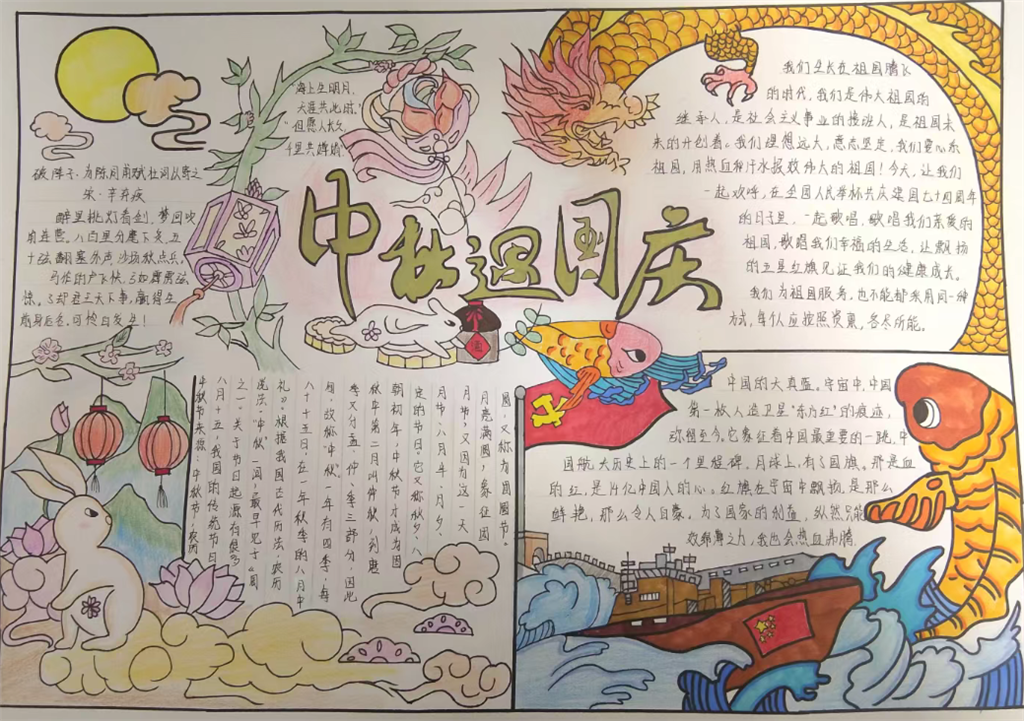 中秋遇国庆
"海上生明月,
天涯共此时."
"但愿人长久,
千里共婵娟."
破阵子·为陈同甫赋壮词以寄之
宋·辛弃疾
醉里挑灯看剑,梦回吹
角连营。八百里分麾下炙,五
十弦翻塞外声,沙场秋点兵。
马作的卢飞快,弓如霹雳弦
惊。了却君王天下事,赢得生
前身后名,可怜白发生!
我们生长在祖国腾飞
的时代,我们是伟大祖国的
继承人,是社会主义事业的接班人,是祖国未
来的开创者。我们理想远大,意志坚定,我们要心系
祖国,用热血和汗水报效伟大的祖国!今天,让我们
一起欢呼,在全国人民举杯共庆建国七十四周年
的日子里,一起歌唱,歌唱我们亲爱的
祖国,歌唱我们幸福的生活,让飘扬
的五星红旗见证我们的健康成长。
我们为祖国服务,也不能都采用同一种
方式,每个人应按照资禀,各尽所能。
中秋节来源:中秋节,农历
八月十五,我国的传统节日
之一。关于节日起源有很多
说法,"中秋"一词,最早见于《周
礼》。根据我国古代历法,农历
八月十五日,在一年秋季的八月中
旬,故称"中秋"。一年有四季,每
季又分孟、仲、季三部分,因此
秋季第二月叫仲秋,到唐
朝初年,中秋节才成为固
定的节日。它又称秋夕、八
月节、八月半、月夕、
月节,又因为这一天
月亮满圆,象征团
圆,又称为团圆节。
中国的天真蓝。宇宙中,中国
第一枚人造卫星"东方红"的痕迹,
弥留至今。它象征着中国最重要的一跳,中
国航天历史上的一个里程碑。月球上,有了国旗。那是血
的红,是14亿中国人的心。红旗在宇宙中飘扬,是那么
鲜艳,那么令人自豪。为了国家的创造,纵然只能
效绵薄之力,我也会热血沸腾.
酒